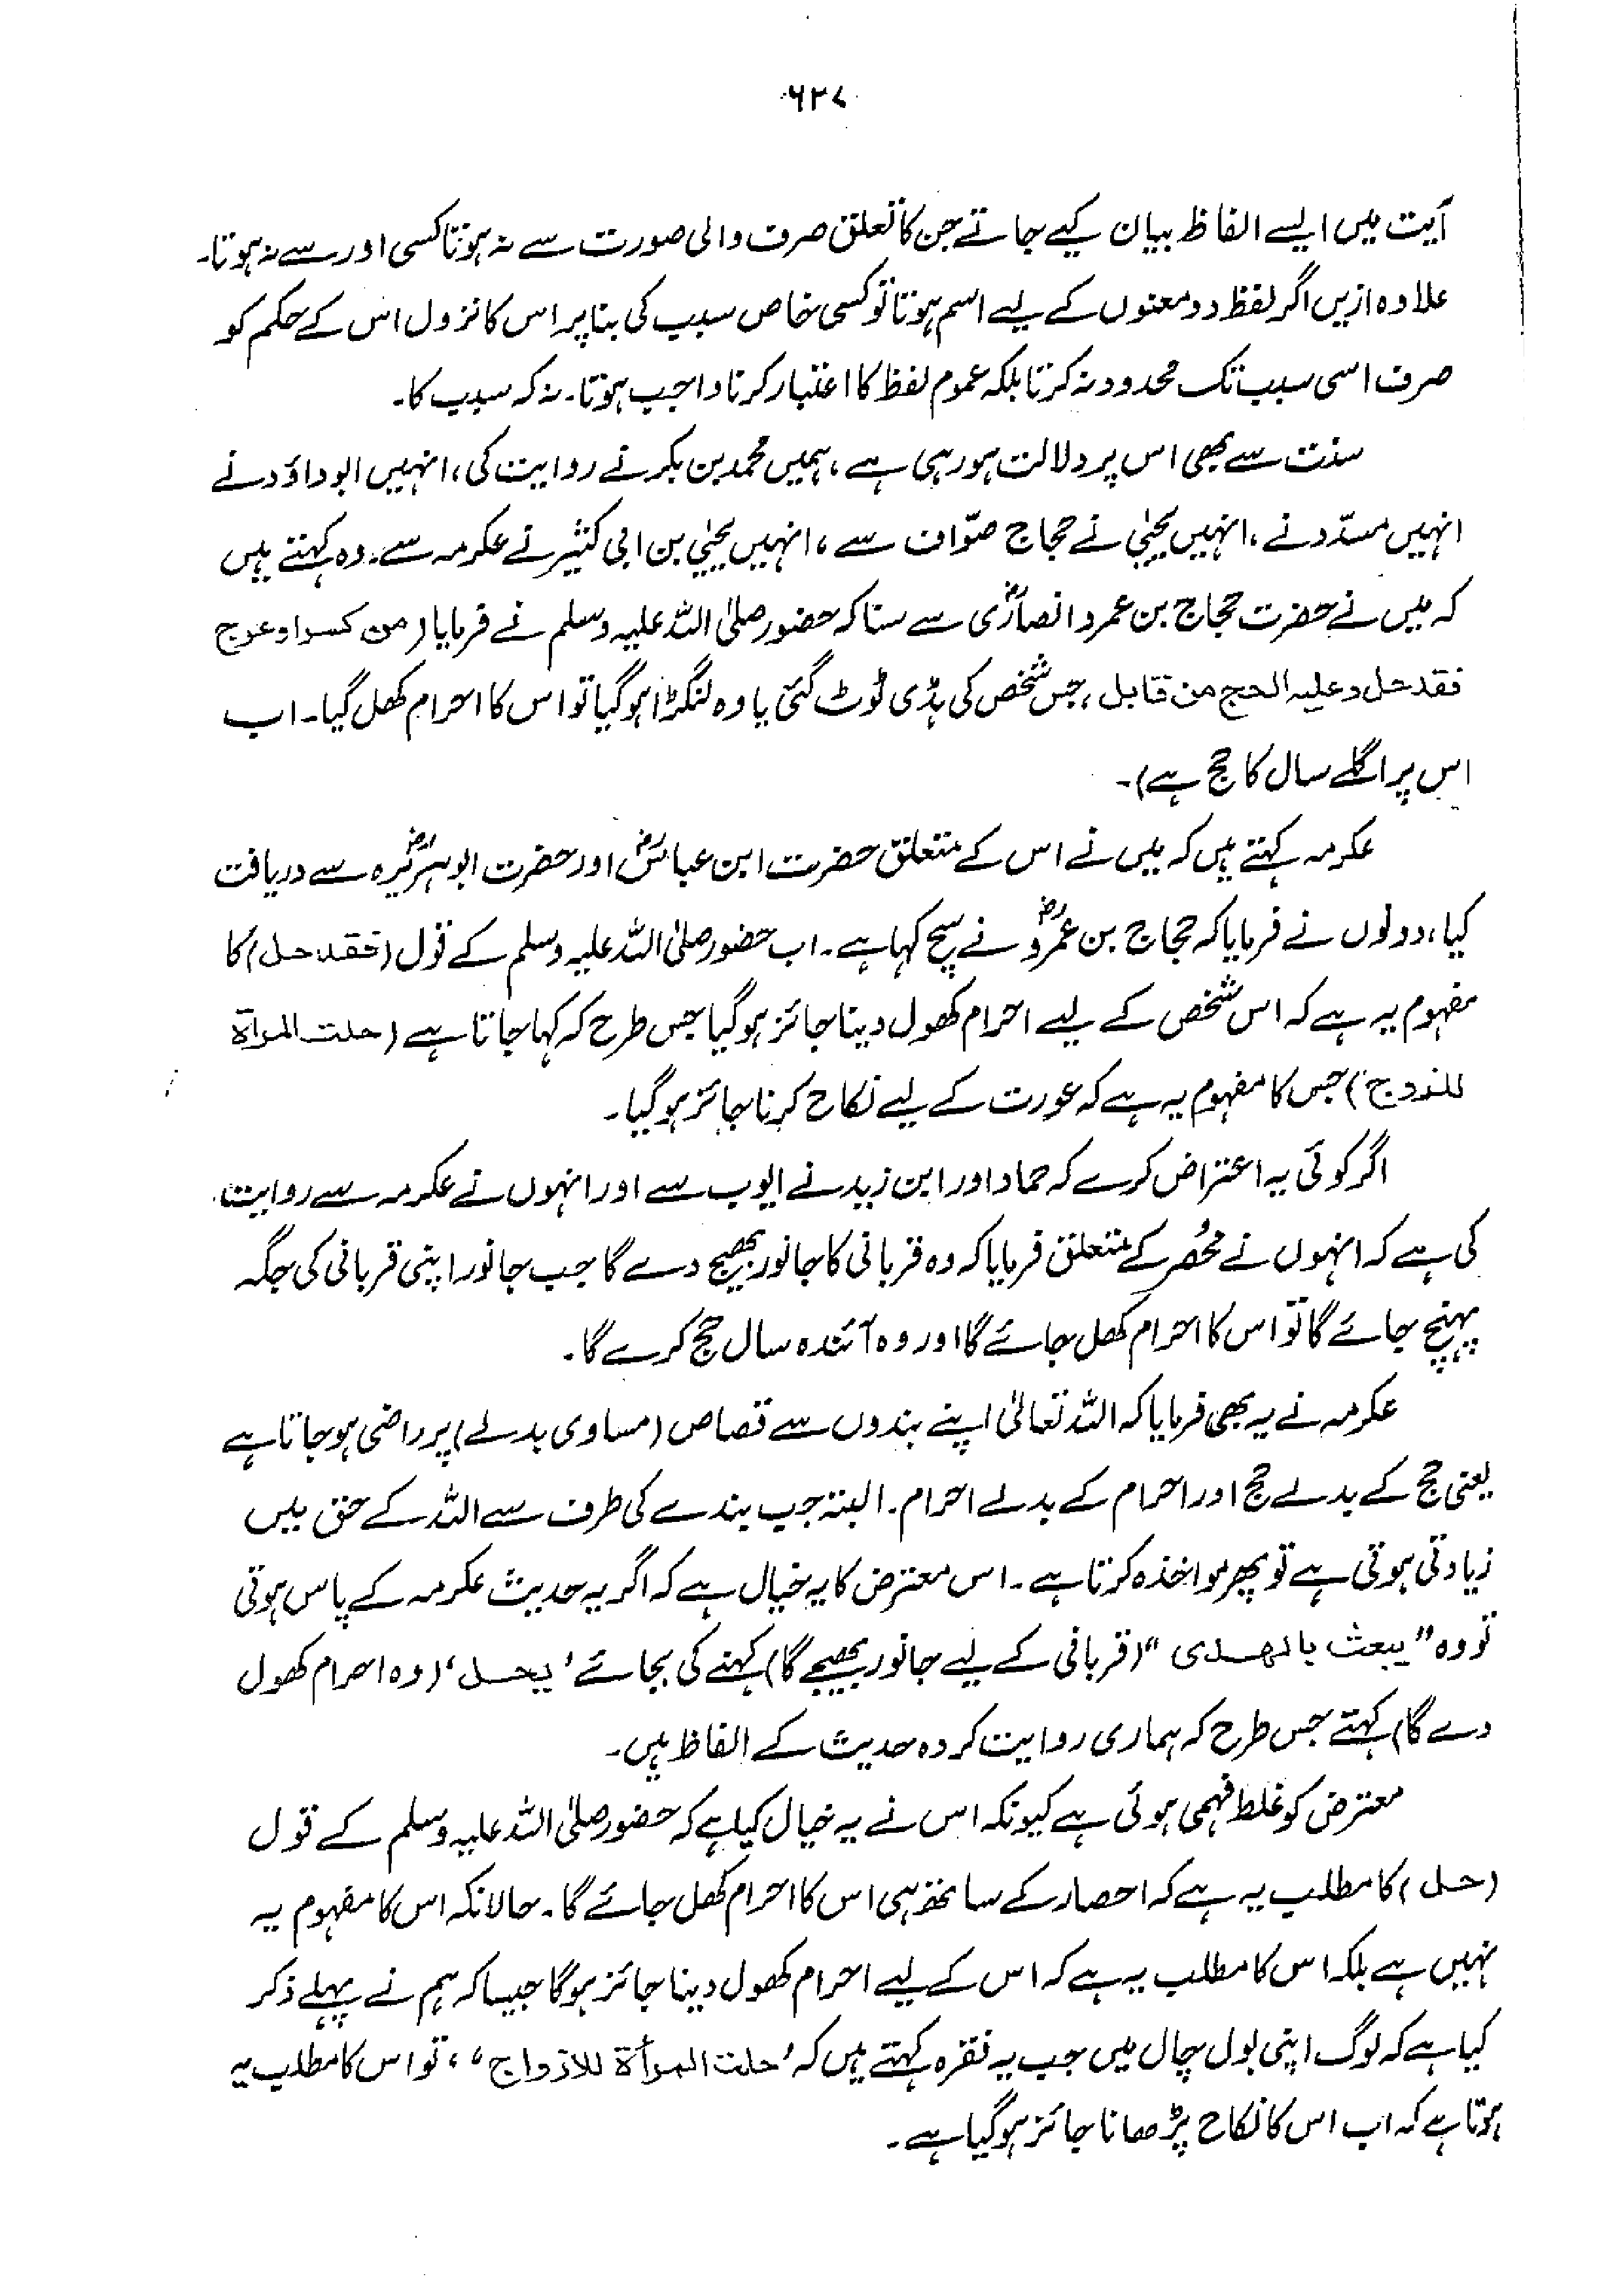 ۶۲۷
آیت میں ایسے الفاظ بیان کیے جاتے جن کا تعلق صرف والی صورت سے نہ ہوتا کسی اور سے نہ ہوتا۔
علاوہ ازیں اگر لفظ دو معنوں کے لیے اسم ہوتا تو کسی خاص سبب کی بنا پر اس کا نزول اس کے حکم کو
صرف اسی سبب تک محدود نہ کرتا بلکہ عموم لفظ کا اعتبار کرنا واجب ہوتا۔ نہ کہ سبب کا۔
سنت سے بھی اس پر دلالت ہو رہی ہے، ہمیں محمد بن بکر نے روایت کی، انہیں ابوداؤد نے
انہیں مسدّد نے، انہیں یحییٰ نے حجاج صوّاف سے، انہیں یحییٰ بن ابی کثیر نے عکرمہ سے۔ وہ کہتے ہیں
کہ میں نے حضرت حجاج بن عمرو انصاریؓ سے سنا کہ حضور صلی اللہ علیہ وسلم نے فرمایا (من کسر او عرج
فقد حل وعلیہ الحج من قابل، جس شخص کی ہڈی ٹوٹ گئی یا وہ لنگڑا ہو گیا تو اس کا احرام کھل گیا۔ اب
اس پر اگلے سال کا حج ہے)۔
عکرمہ کہتے ہیں کہ میں نے اس کے متعلق حضرت ابن عباسؓ اور حضرت ابوہریرہؓ سے دریافت
کیا، دونوں نے فرمایا کہ حجاج بن عمروؓ نے سچ کہا ہے۔ اب حضور صلی اللہ علیہ وسلم کے قول (فقد حل) کا
مفہوم یہ ہے کہ اس شخص کے لیے احرام کھول دینا جائز ہو گیا جس طرح کہ کہا جاتا ہے (حلت المرأۃ
للزوج) جس کا مفہوم یہ ہے کہ عورت کے لیے نکاح کرنا جائز ہو گیا۔
اگر کوئی یہ اعتراض کرے کہ حماد اور ابن زید نے ایوب سے اور انہوں نے عکرمہ سے روایت
کی ہے کہ انہوں نے مُحصر کے متعلق فرمایا کہ وہ قربانی کا جانور بھیج دے گا جب جانور اپنی قربانی کی جگہ
پہنچ جائے گا تو اس کا احرام کھل جائے گا اور وہ آئندہ سال حج کرے گا۔
عکرمہ نے یہ بھی فرمایا کہ اللہ تعالیٰ اپنے بندوں سے قصاص (مساوی بدلے) پر راضی ہو جاتا ہے
یعنی حج کے بدلے حج اور احرام کے بدلے احرام۔ البتہ جب بندے کی طرف سے اللہ کے حق میں
زیادتی ہوتی ہے تو پھر مواخذہ کرتا ہے۔ اس معترض کا یہ خیال ہے کہ اگر یہ حدیث عکرمہ کے پاس ہوتی
تو وہ ”یبعث بالھدی“ (قربانی کے لیے جانور بھیجے گا) کہنے کی بجائے ’یحل‘ (وہ احرام کھول
دے گا) کہتے جس طرح کہ ہماری روایت کردہ حدیث کے الفاظ ہیں۔
معترض کو غلط فہمی ہوئی ہے کیونکہ اس نے یہ خیال کیا ہے کہ حضور صلی اللہ علیہ وسلم کے قول
(حل) کا مطلب یہ ہے کہ احصار کے ساتھ ہی اس کا احرام کھل جائے گا۔ حالانکہ اس کا مفہوم یہ
نہیں ہے بلکہ اس کا مطلب یہ ہے کہ اس کے لیے احرام کھول دینا جائز ہو گا جیسا کہ ہم نے پہلے ذکر
کیا ہے کہ لوگ اپنی بول چال میں جب یہ فقرہ کہتے ہیں کہ ’حلت المرأۃ للازواج‘، تو اس کا مطلب یہ
ہوتا ہے کہ اب اس کا نکاح پڑھانا جائز ہو گیا ہے۔